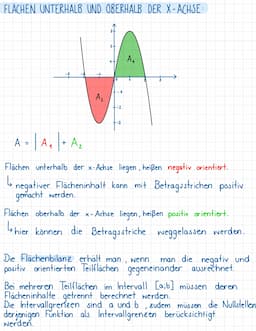 FLÄCHEN UNTERHALB UND OBERHALB DER X-ACHSE:
A = | A₁ | + A₂
Flächen unterhalb der x-Achse liegen, heißen negativ orientiert.
↳ negativer Flächeninhalt kann mit Betragsstrichen positiv
gemacht werden.
Flächen oberhalb der x-Achse liegen, heißen positiv orientiert.
↳ hier können die Betragsstriche weggelassen werden.
Die Flächenbilanz erhält man, wenn man die negativ und
positiv orientierten Teilflächen gegeneinander ausrechnet.
Bei mehreren Teilflächen im Intervall [a;b] müssen deren
Flächeninhalte getrennt berechnet werden.
Die Intervallgrenzen sind a und b, zudem müssen die Nullstellen
derjenigen Funktion als Intervallgrenzen berücksichtigt
werden.